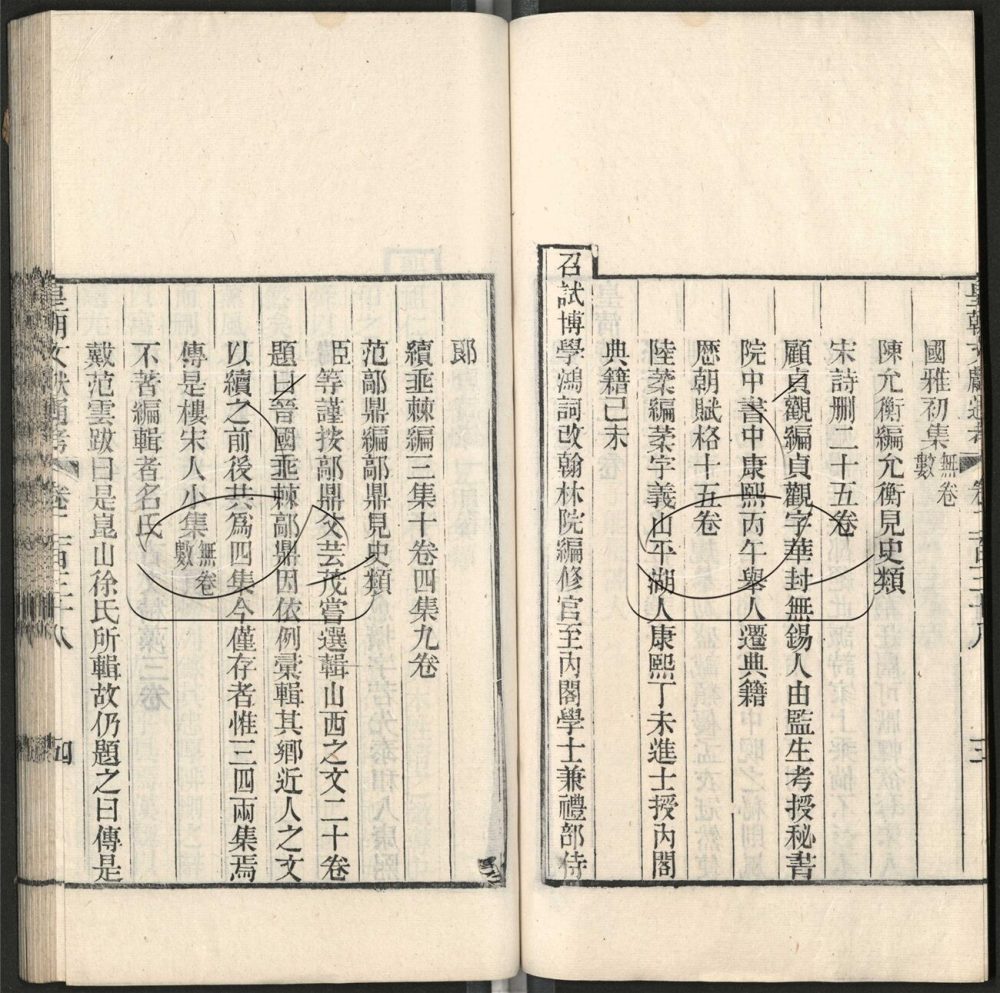 皇朝文獻通考 卷二百三十八 三
國雅初集無卷數
陳允衡編允衡見史類
宋詩刪二十五卷
顧貞觀編貞觀字華封無錫人由監生考授秘書
院中書中康熙丙午舉人遷典籍
歷朝賦格十五卷
陸葇編葇字義山平湖人康熙丁未進士授內閣
典籍己未
召試博學鴻詞改翰林院編修官至內閣學士兼禮部侍
郎
續垂棘編三集十卷四集九卷
范鄗鼎編鄗鼎見史類
臣等謹按鄗鼎父芸茂嘗選輯山西之文二十卷
題曰晉國垂棘鄗鼎因依例彙輯其鄉近人之文
以續之前後共爲四集今僅存者惟三四兩集焉
傳是樓宋人小集無卷數
不著編輯者名氏
戴范雲跋曰是崑山徐氏所輯故仍題之曰傳是
皇朝文獻通考 卷二百三十八 四